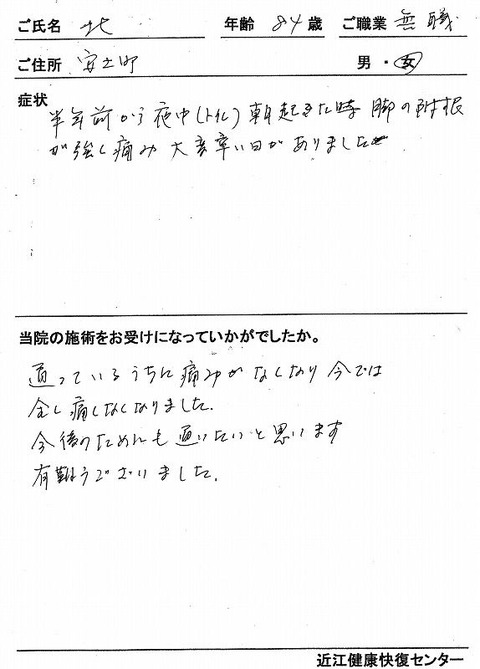 ご氏名 北 年齢 84 歳 ご職業 無職
ご住所 安土町 男・女
症状
半年前から夜中(トイレ)朝起きた時 脚の附根
が強く痛み 大変辛い日がありました
当院の施術をお受けになっていかがでしたか。
通っているうちに痛みがなくなり今では
全く痛くなくなりました。
今後のためにも通いたいと思います
有難うございました。
近江健康快復センター